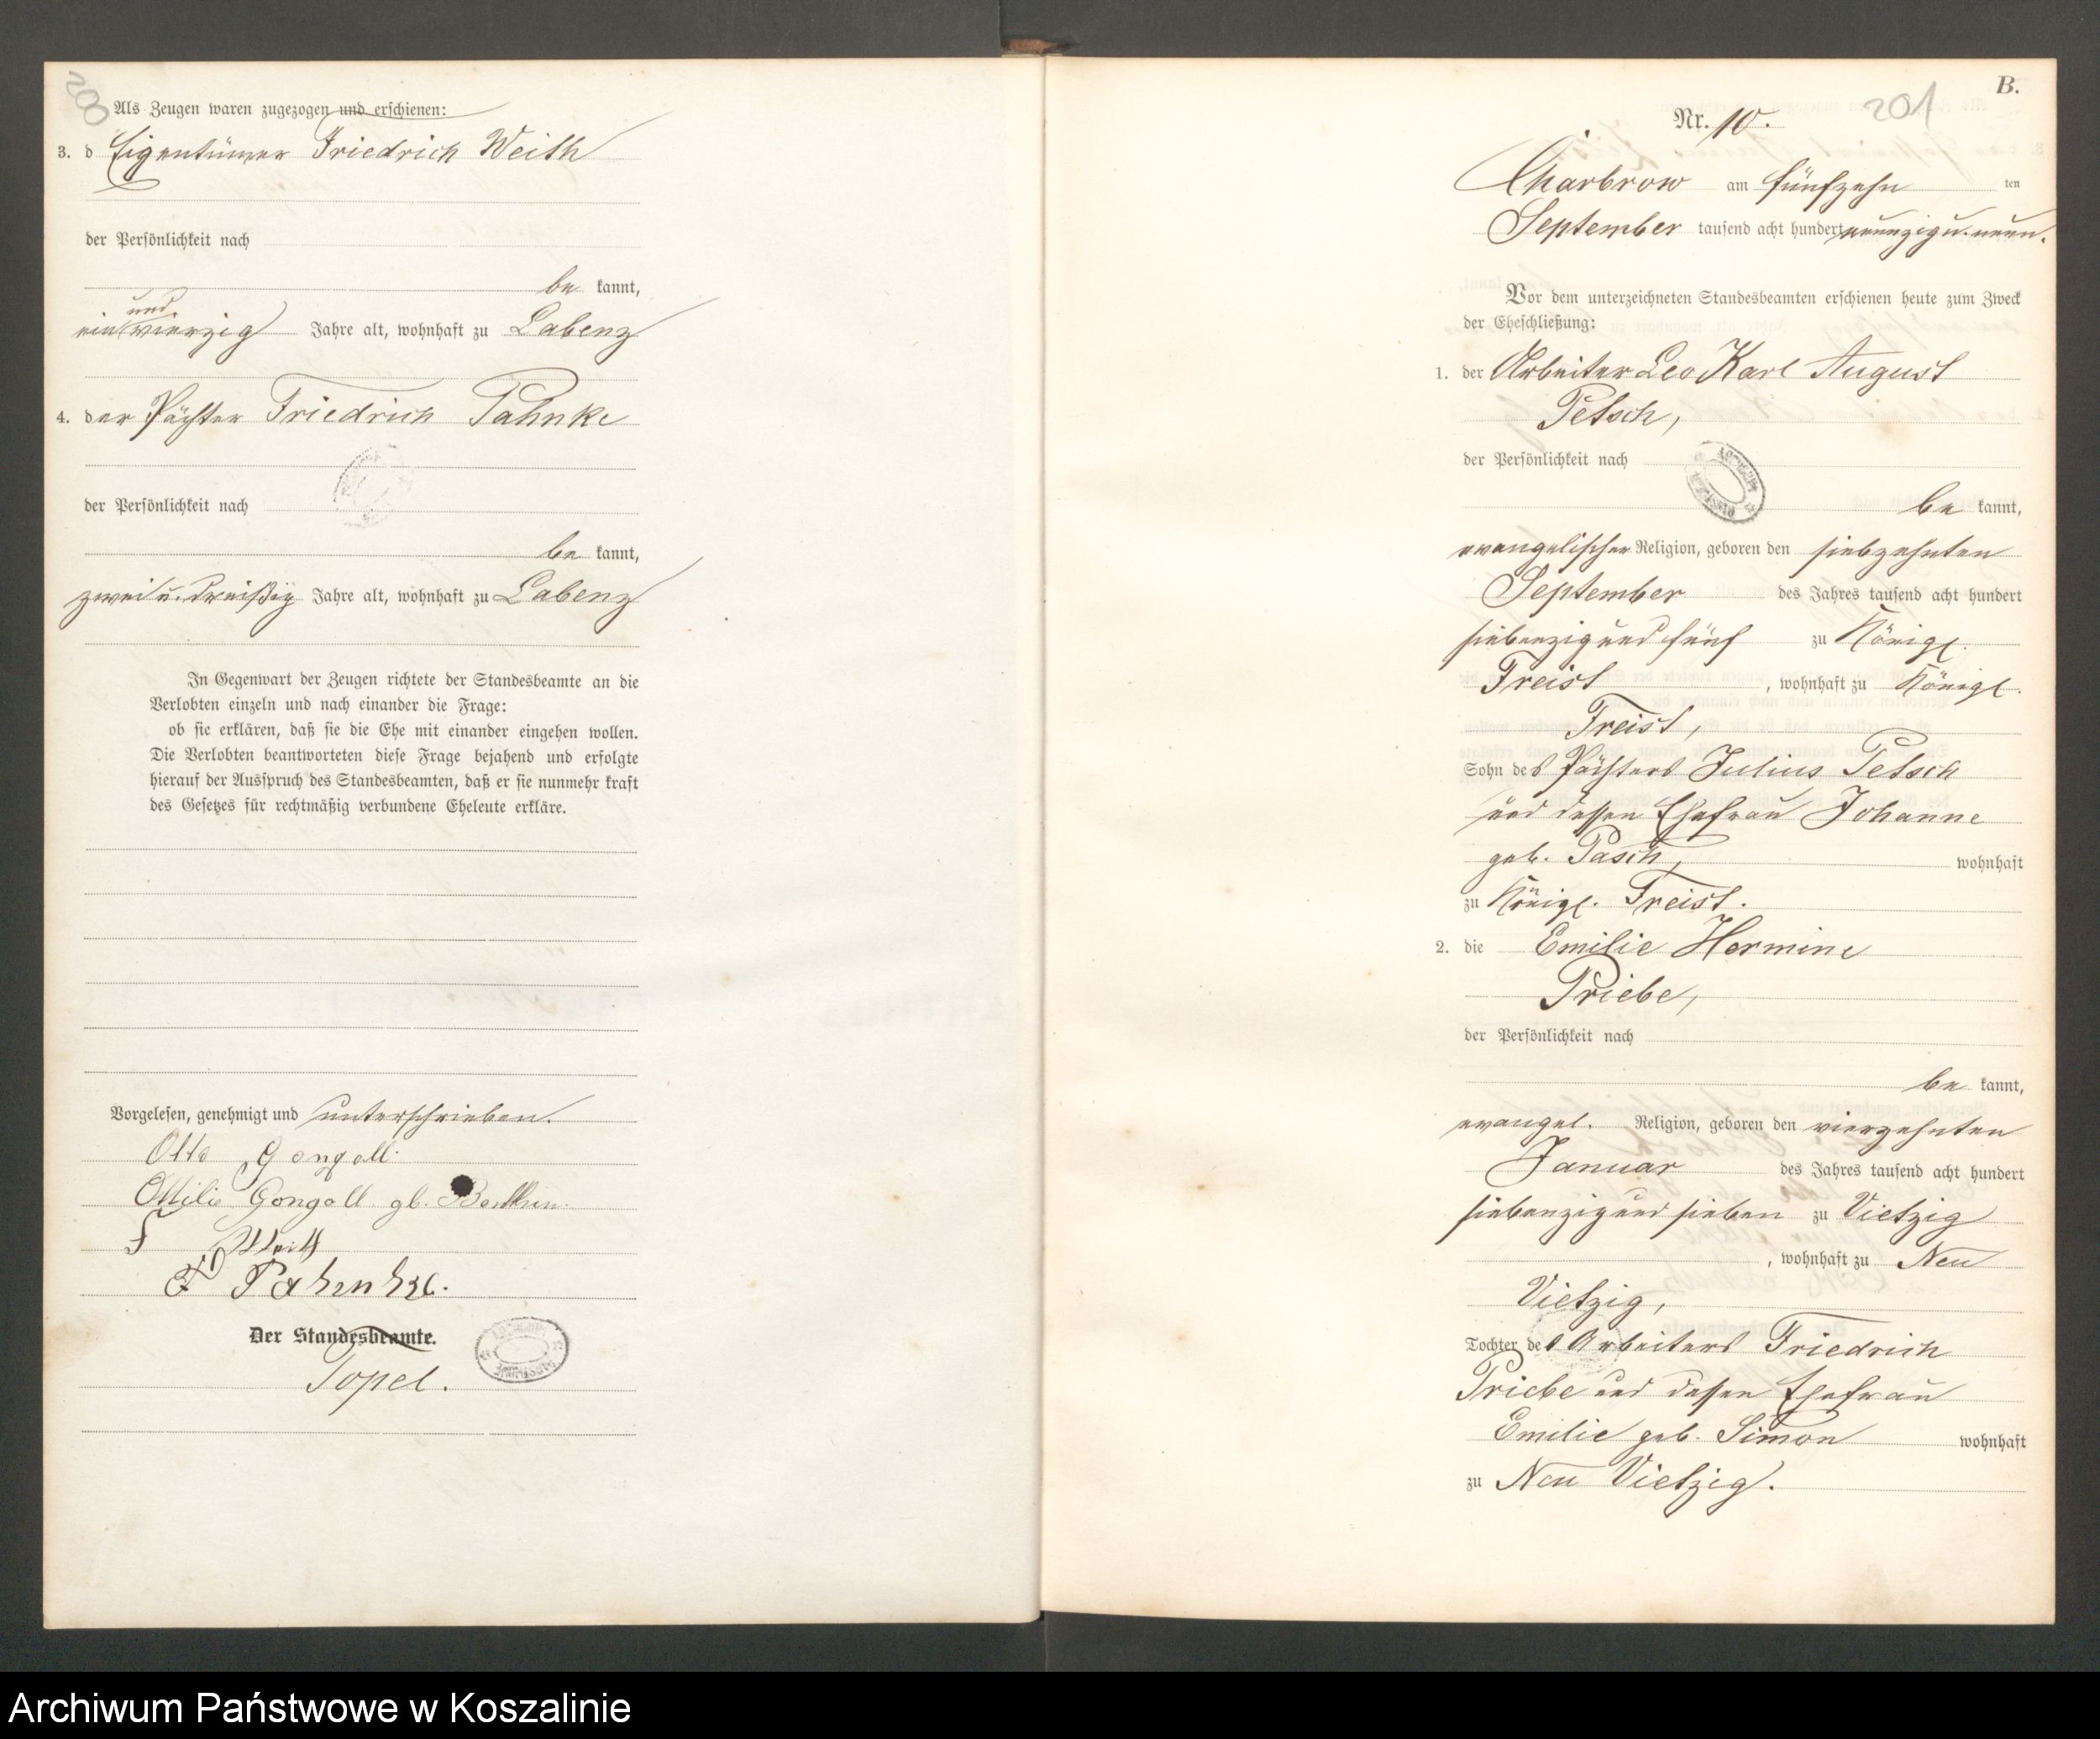 200
Als Zeugen waren zugezogen und erschienen:
3. d Eigentümer Friedrich Weith
der Persönlichkeit nach
be kannt,
und
ein vierzig Jahre alt, wohnhaft zu Labenz
4. der Pächter Friedrich Pahnke
der Persönlichkeit nach
be kannt,
zwei u. dreißig Jahre alt, wohnhaft zu Labenz
In Gegenwart der Zeugen richtete der Standesbeamte an die
Verlobten einzeln und nach einander die Frage:
ob sie erklären, daß sie die Ehe mit einander eingehen wollen.
Die Verlobten beantworteten diese Frage bejahend und erfolgte
hierauf der Ausspruch des Standesbeamten, daß er sie nunmehr kraft
des Gesetzes für rechtmäßig verbundene Eheleute erkläre.
Vorgelesen, genehmigt und unterschrieben.
Otto Gongoll.
Ottilie Gongoll gb.
F Weith
F Pahnke.
Der Standesbeamte.
Topel.
B.
201
Nr. 10.
Charbrow am fünfzehn ten
September tausend acht hundert neunzig u. neun.
Vor dem unterzeichneten Standesbeamten erschienen heute zum Zweck
der Eheschließung:
1. der Arbeiter Leo Karl August
Petsch,
der Persönlichkeit nach
be kannt,
evangelischer Religion, geboren den siebzehnten
September des Jahres tausend acht hundert
siebenzig und fünf zu Königl.
Freist, wohnhaft zu Königl.
Freist,
Sohn des Pächters Julius Petsch
und dessen Ehefrau Johanne
geb. Pasch, wohnhaft
zu Königl. Freist.
2. die Emilie Hermine
Priebe,
der Persönlichkeit nach
be kannt,
evangel. Religion, geboren den vierzehnten
Januar des Jahres tausend acht hundert
siebenzig und sieben zu Vietzig
, wohnhaft zu Neu
Vietzig,
Tochter des Arbeiters Friedrich
Priebe und dessen Ehefrau
Emilie geb. Simon wohnhaft
zu Neu Vietzig.
Archiwum Państwowe w Koszalinie